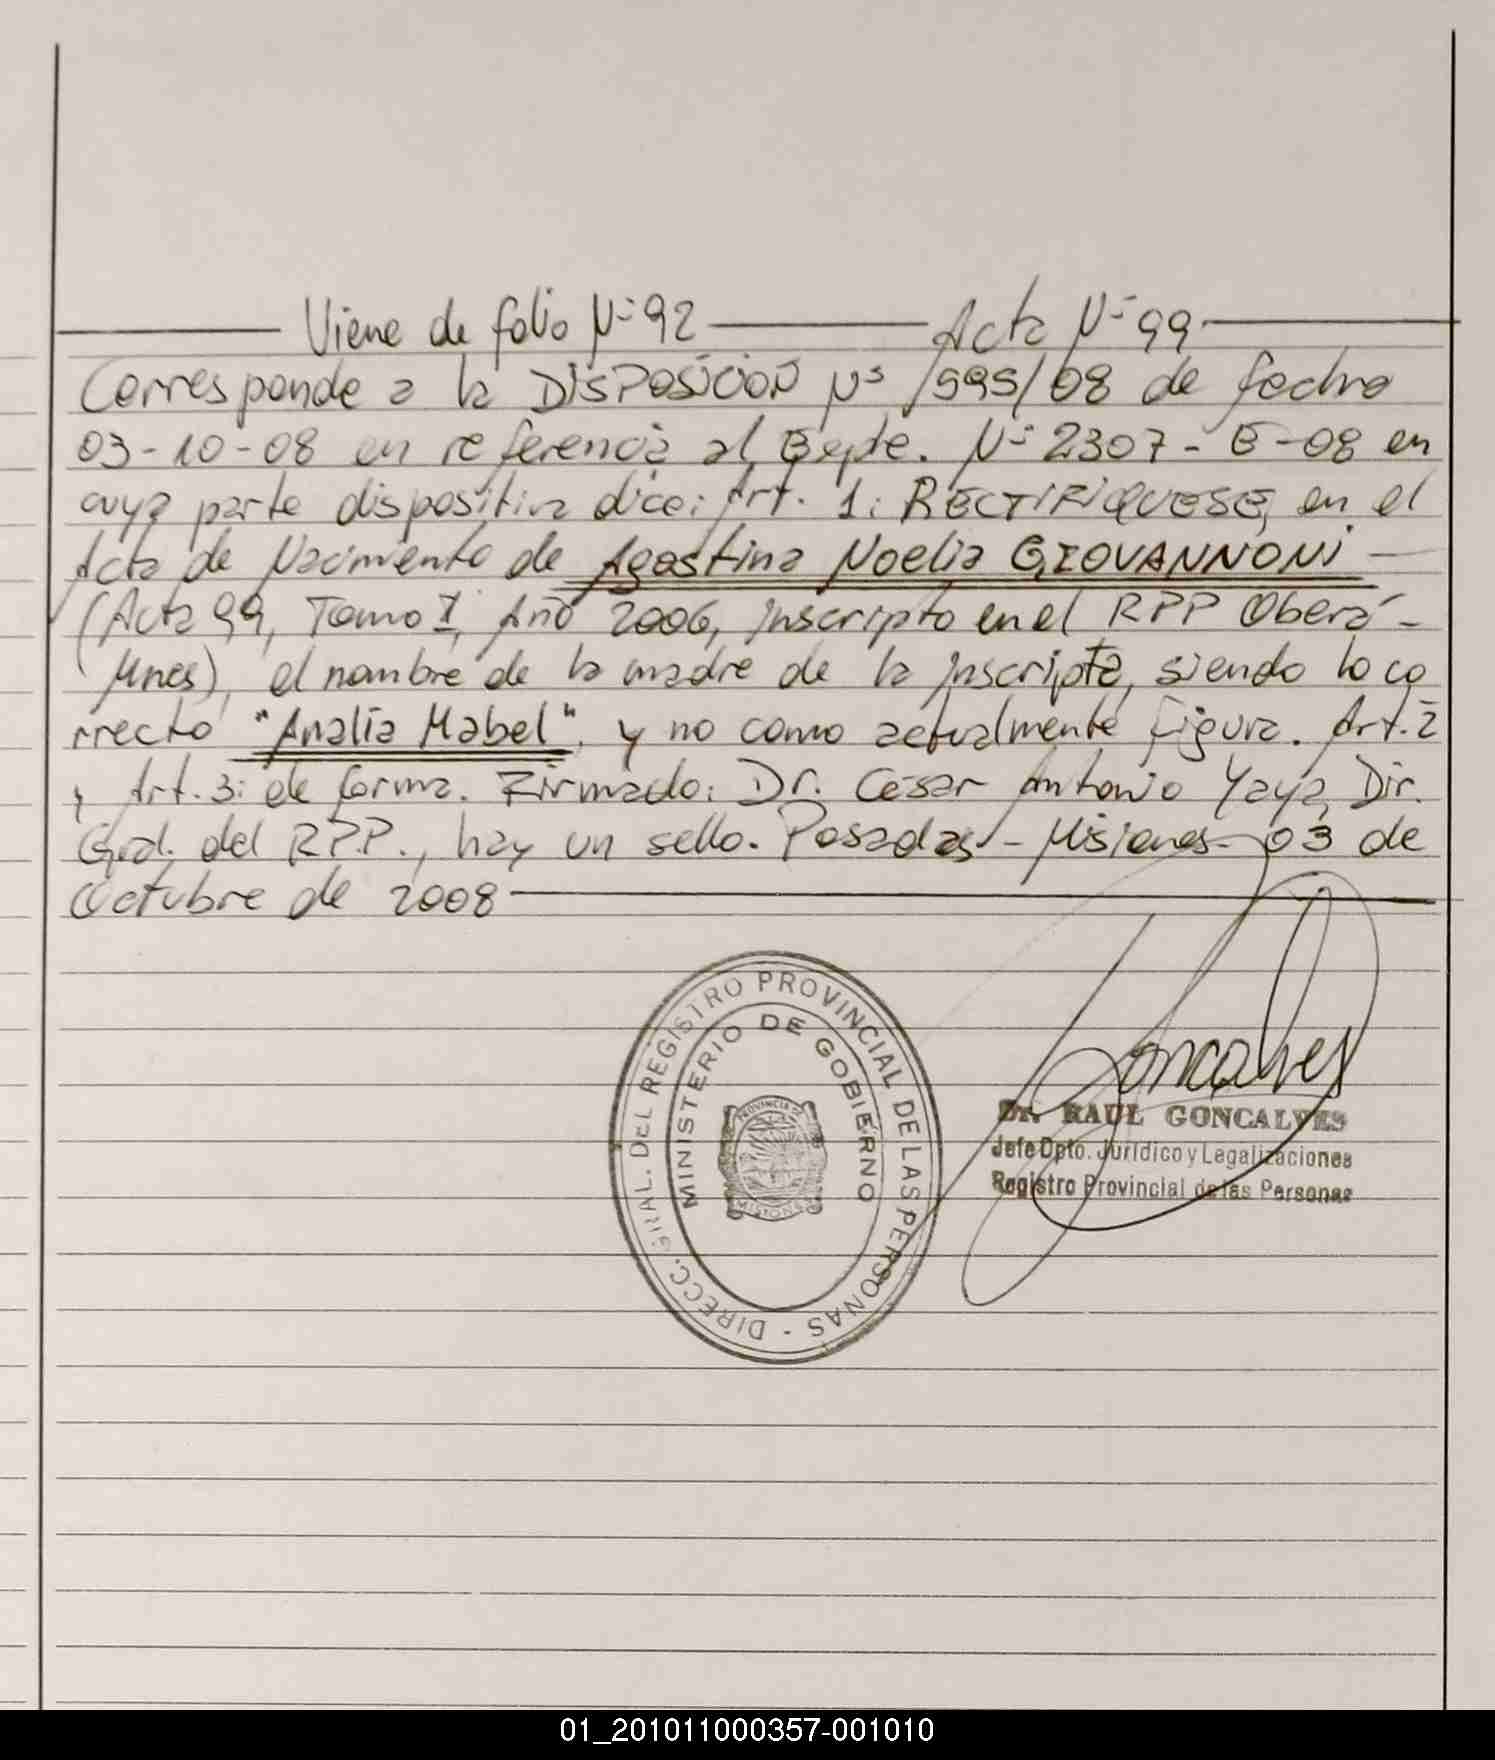 Viene de folio Nº 92 Acta Nº 99
Corresponde a la DISPOSICION Nº 1995/08 de fecha
03-10-08 en referencia al Expte. Nº 2307 - E - 08 en
cuya parte dispositiva dice: Art. 1: RECTIFIQUESE, en el
Acta de Nacimiento de Agostina Noelia GIOVANNONI
(Acta 99, Tomo I, Año 2006, Inscripto en el RPP Oberá -
Mnes), el nombre de la madre de la Inscripta, siendo lo co
rrecto "Analía Mabel", y no como actualmente Figura. Art. 2
y Art. 3: de forma. Firmado: Dr. César Antonio Yaya, Dir.
Gral. del R.P.P., hay un sello. Posadas - Misiones - 03 de
Octubre de 2008
DIRECC. GRAL. DEL REGISTRO PROVINCIAL DE LAS PERSONAS -
MINISTERIO DE GOBIERNO
PROVINCIA DE
MISIONES
Goncalves
Dr. RAUL GONCALVES
Jefe Dpto. Jurídico y Legalizaciones
Registro Provincial de las Personas
01_201011000357-001010